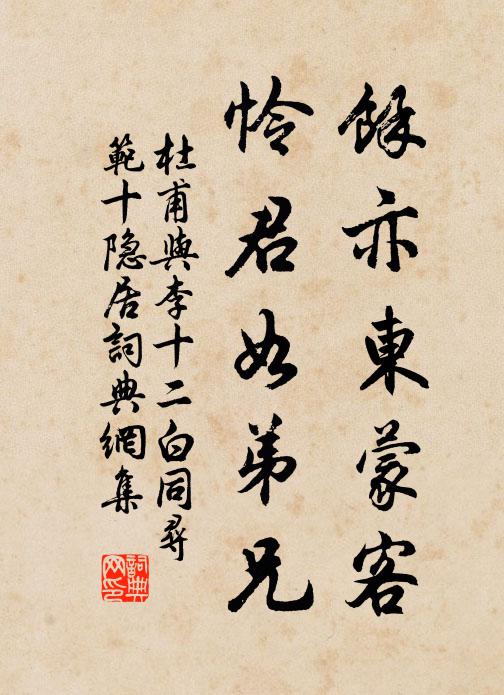 餘亦東蒙客
怜君如弟兄
杜甫與李十二白同尋
範十隐居詞典網集
詞典网印